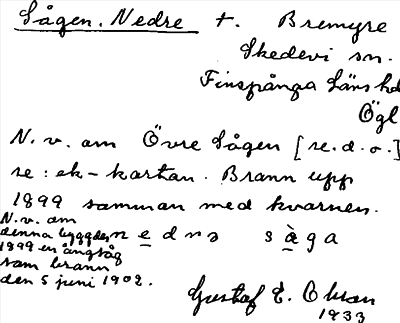 Sågen. Nedre t. Bremyre
Skedevi sn.
Finspånga Läns hd
Ögl
N. v. om Övre Sågen [se. d. o.]
se: ek-kartan. Brann upp
1899 samman med kvarnen.
N. v. om
denna byggdes
1899 en ångsåg
som brann
den 5 juni 1902.
nednə sàga
Gustaf E. Olson
1933